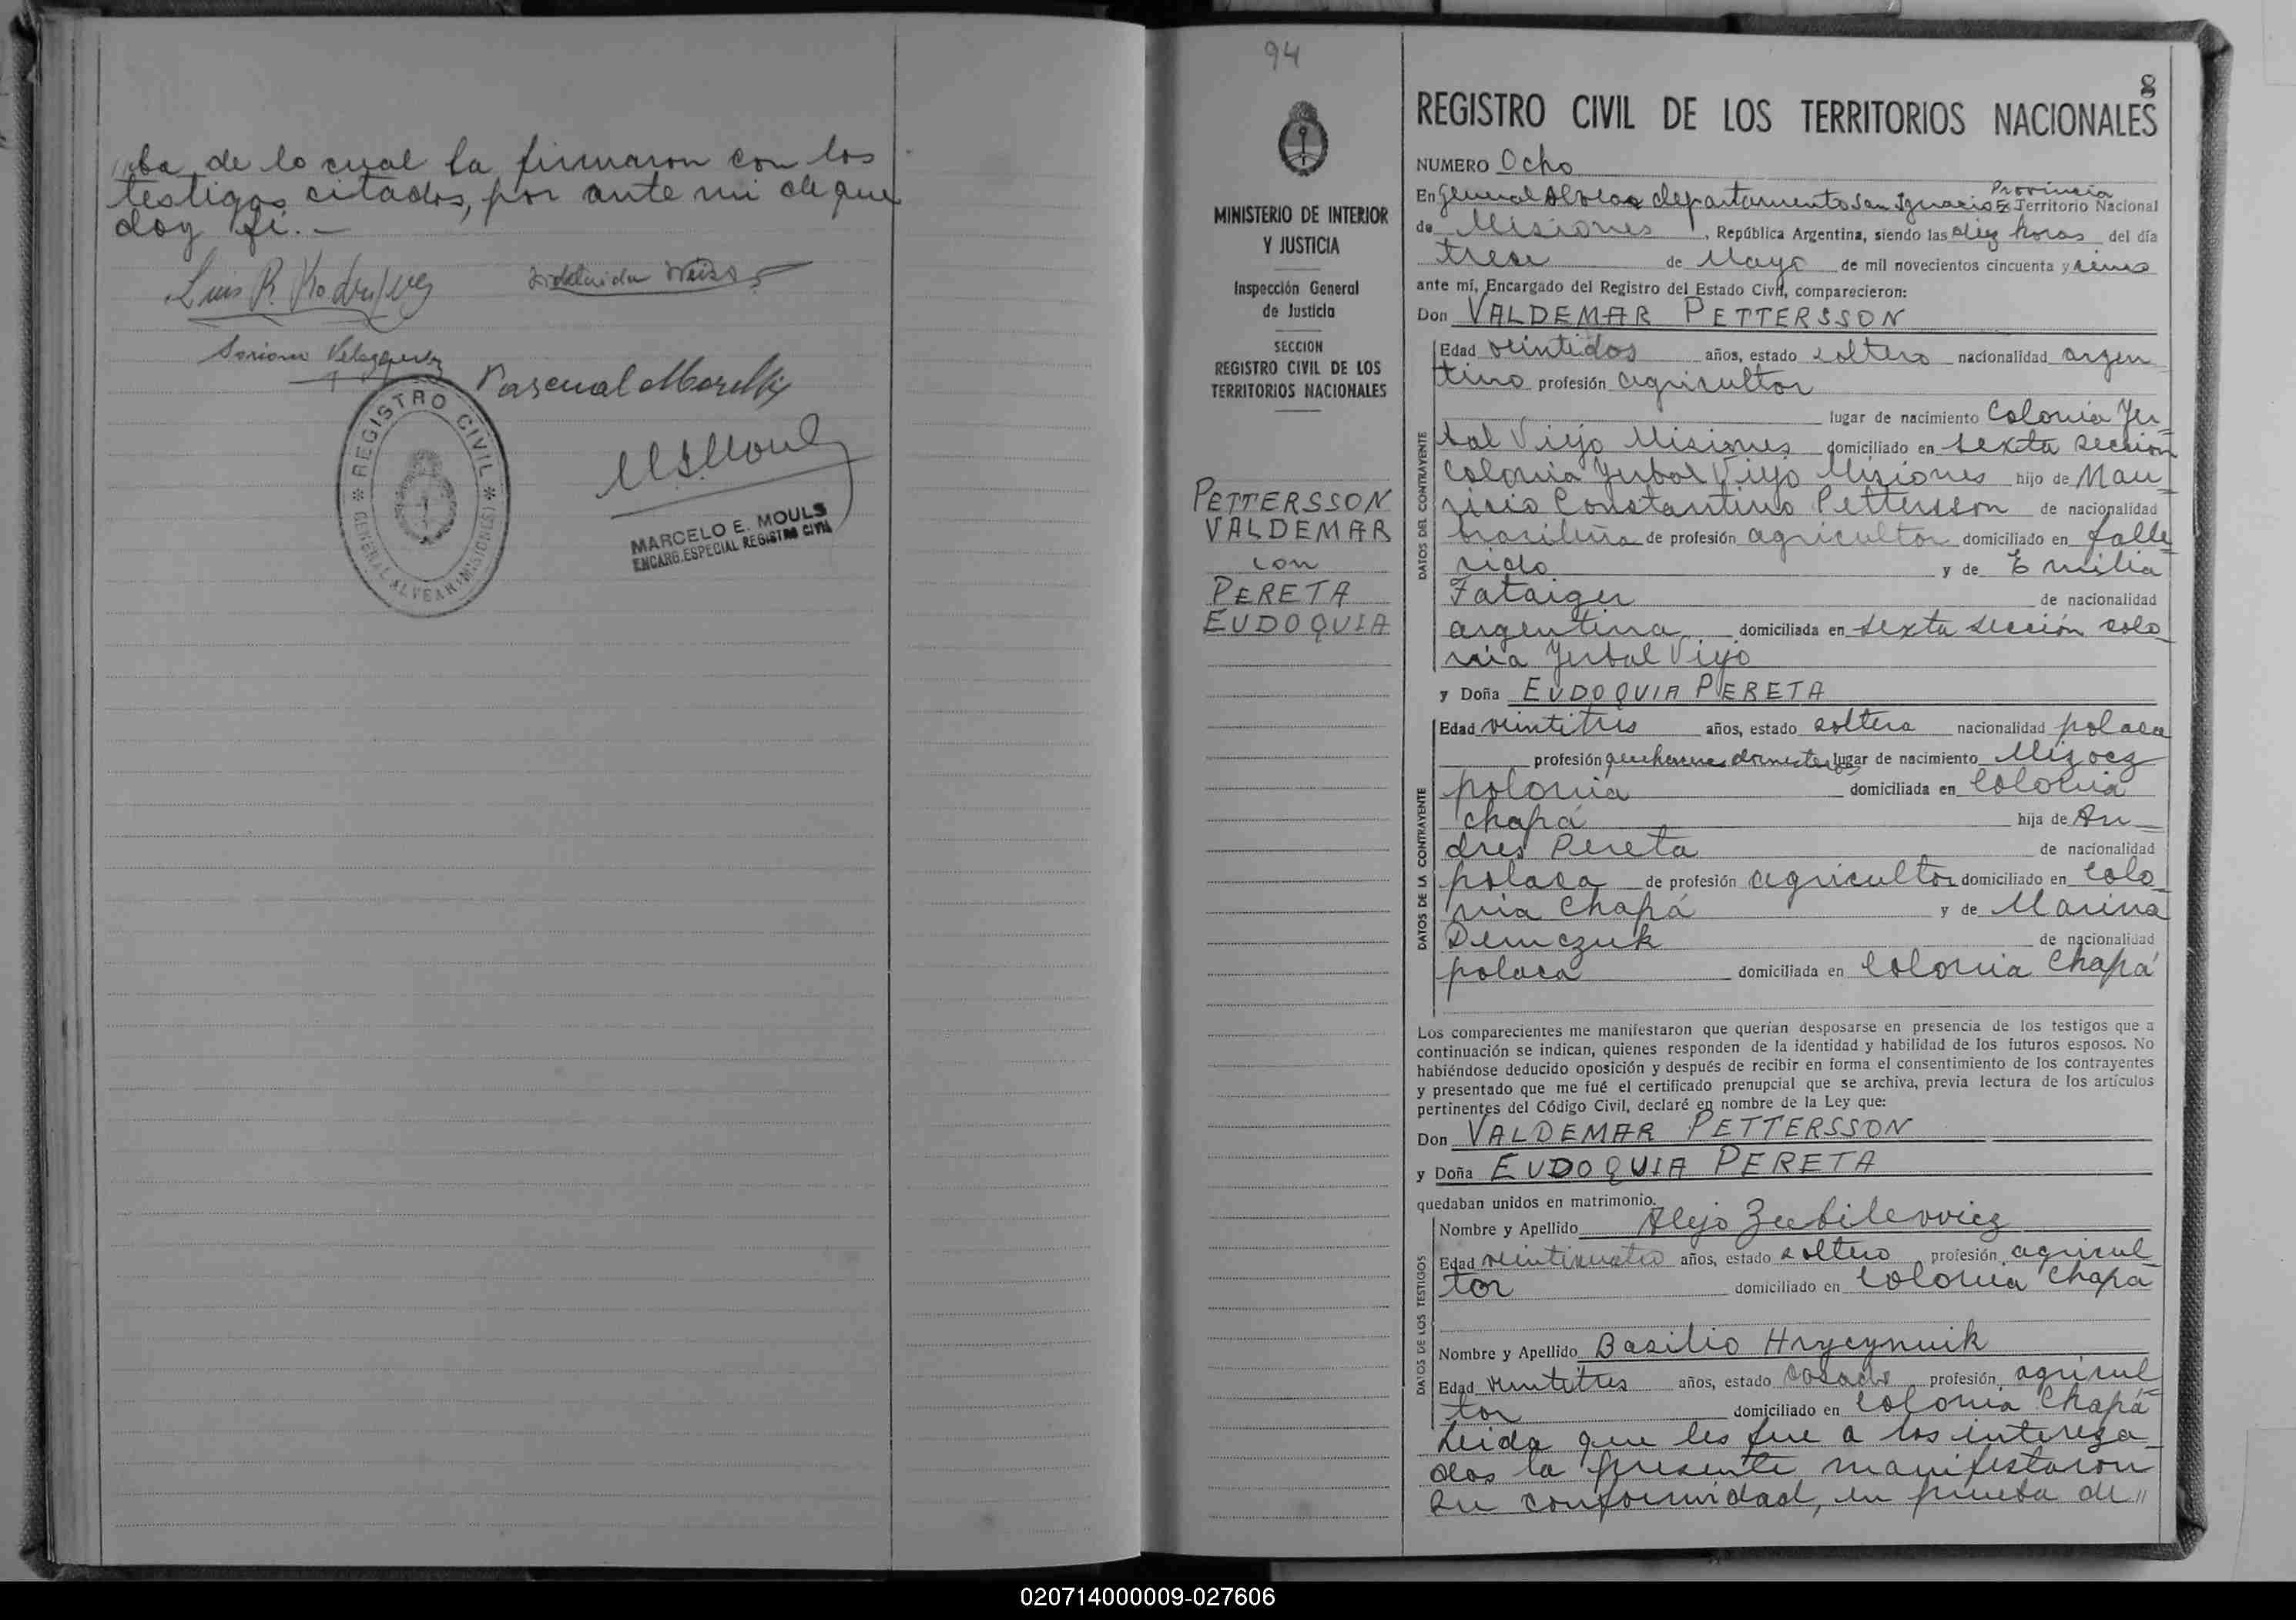 //ba de lo cual la firmaron con los
testigos citados, por ante mi de que
doy fé.-
Luis R. Rodriguez
Adelaida Weiss
Soriano Velazquez
Pascual Morelli
* REGISTRO CIVIL *
GENERAL ALVEAR (MISIONES)
MARCELO E. MOULS
ENCARG. ESPECIAL REGISTRO CIVIL
94
MINISTERIO DE INTERIOR
Y JUSTICIA
Inspección General
de Justicia
SECCION
REGISTRO CIVIL DE LOS
TERRITORIOS NACIONALES
PETTERSSON
VALDEMAR
con
PERETA
EUDOQUIA
8
REGISTRO CIVIL DE LOS TERRITORIOS NACIONALES
NUMERO Ocho
Provincia
En General Alvear departamento San Ignacio Ex Territorio Nacional
de Misiones, República Argentina, siendo las diez horas del día
trece de Mayo de mil novecientos cincuenta y
ante mí, Encargado del Registro del Estado Civil, comparecieron:
Don VALDEMAR PETTERSSON
Edad veintidos años, estado soltero nacionalidad argen
tino profesión agricultor
lugar de nacimiento Colonia Yer-
bal Viejo Misiones domiciliado en sexta sección
colonia Yerbal Viejo Misiones hijo de Mau-
ricio Constantino Pettersson de nacionalidad
brasileña de profesión agricultor domiciliado en falle
cido y de Emilia
Fataiger de nacionalidad
argentina domiciliada en sexta sección colo
nia Yerbal Viejo
y Doña EUDOQUIA PERETA
Edad veintitres años, estado soltera nacionalidad polaca
profesión quehaceres domesticos lugar de nacimiento Mizocz
polonia domiciliada en Colonia
chapá hija de An-
dres Pereta de nacionalidad
polaca de profesión agricultor domiciliado en Colo-
nia Chapá y de Marina
Demczuk de nacionalidad
polaca domiciliada en Colonia Chapá
Los comparecientes me manifestaron que querían desposarse en presencia de los testigos que a
continuación se indican, quienes responden de la identidad y habilidad de los futuros esposos. No
habiéndose deducido oposición y después de recibir en forma el consentimiento de los contrayentes
y presentado que me fué el certificado prenupcial que se archiva, previa lectura de los artículos
pertinentes del Código Civil, declaré en nombre de la Ley que:
Don VALDEMAR PETTERSSON
y Doña EUDOQUIA PERETA
quedaban unidos en matrimonio.
Nombre y Apellido Alejo Zubilewicz
Edad veinticuatro años, estado soltero profesión agricul-
tor domiciliado en Colonia Chapá
Nombre y Apellido Basilio Hrycynuik
Edad veintitres años, estado casado profesión agricul-
tor domiciliado en Colonia Chapá
Leida que les fue a los interesa-
dos la presente manifestaron
su conformidad, en prueba de//
DATOS DEL CONTRAYENTE
DATOS DE LA CONTRAYENTE
DATOS DE LOS TESTIGOS
020714000009-027606